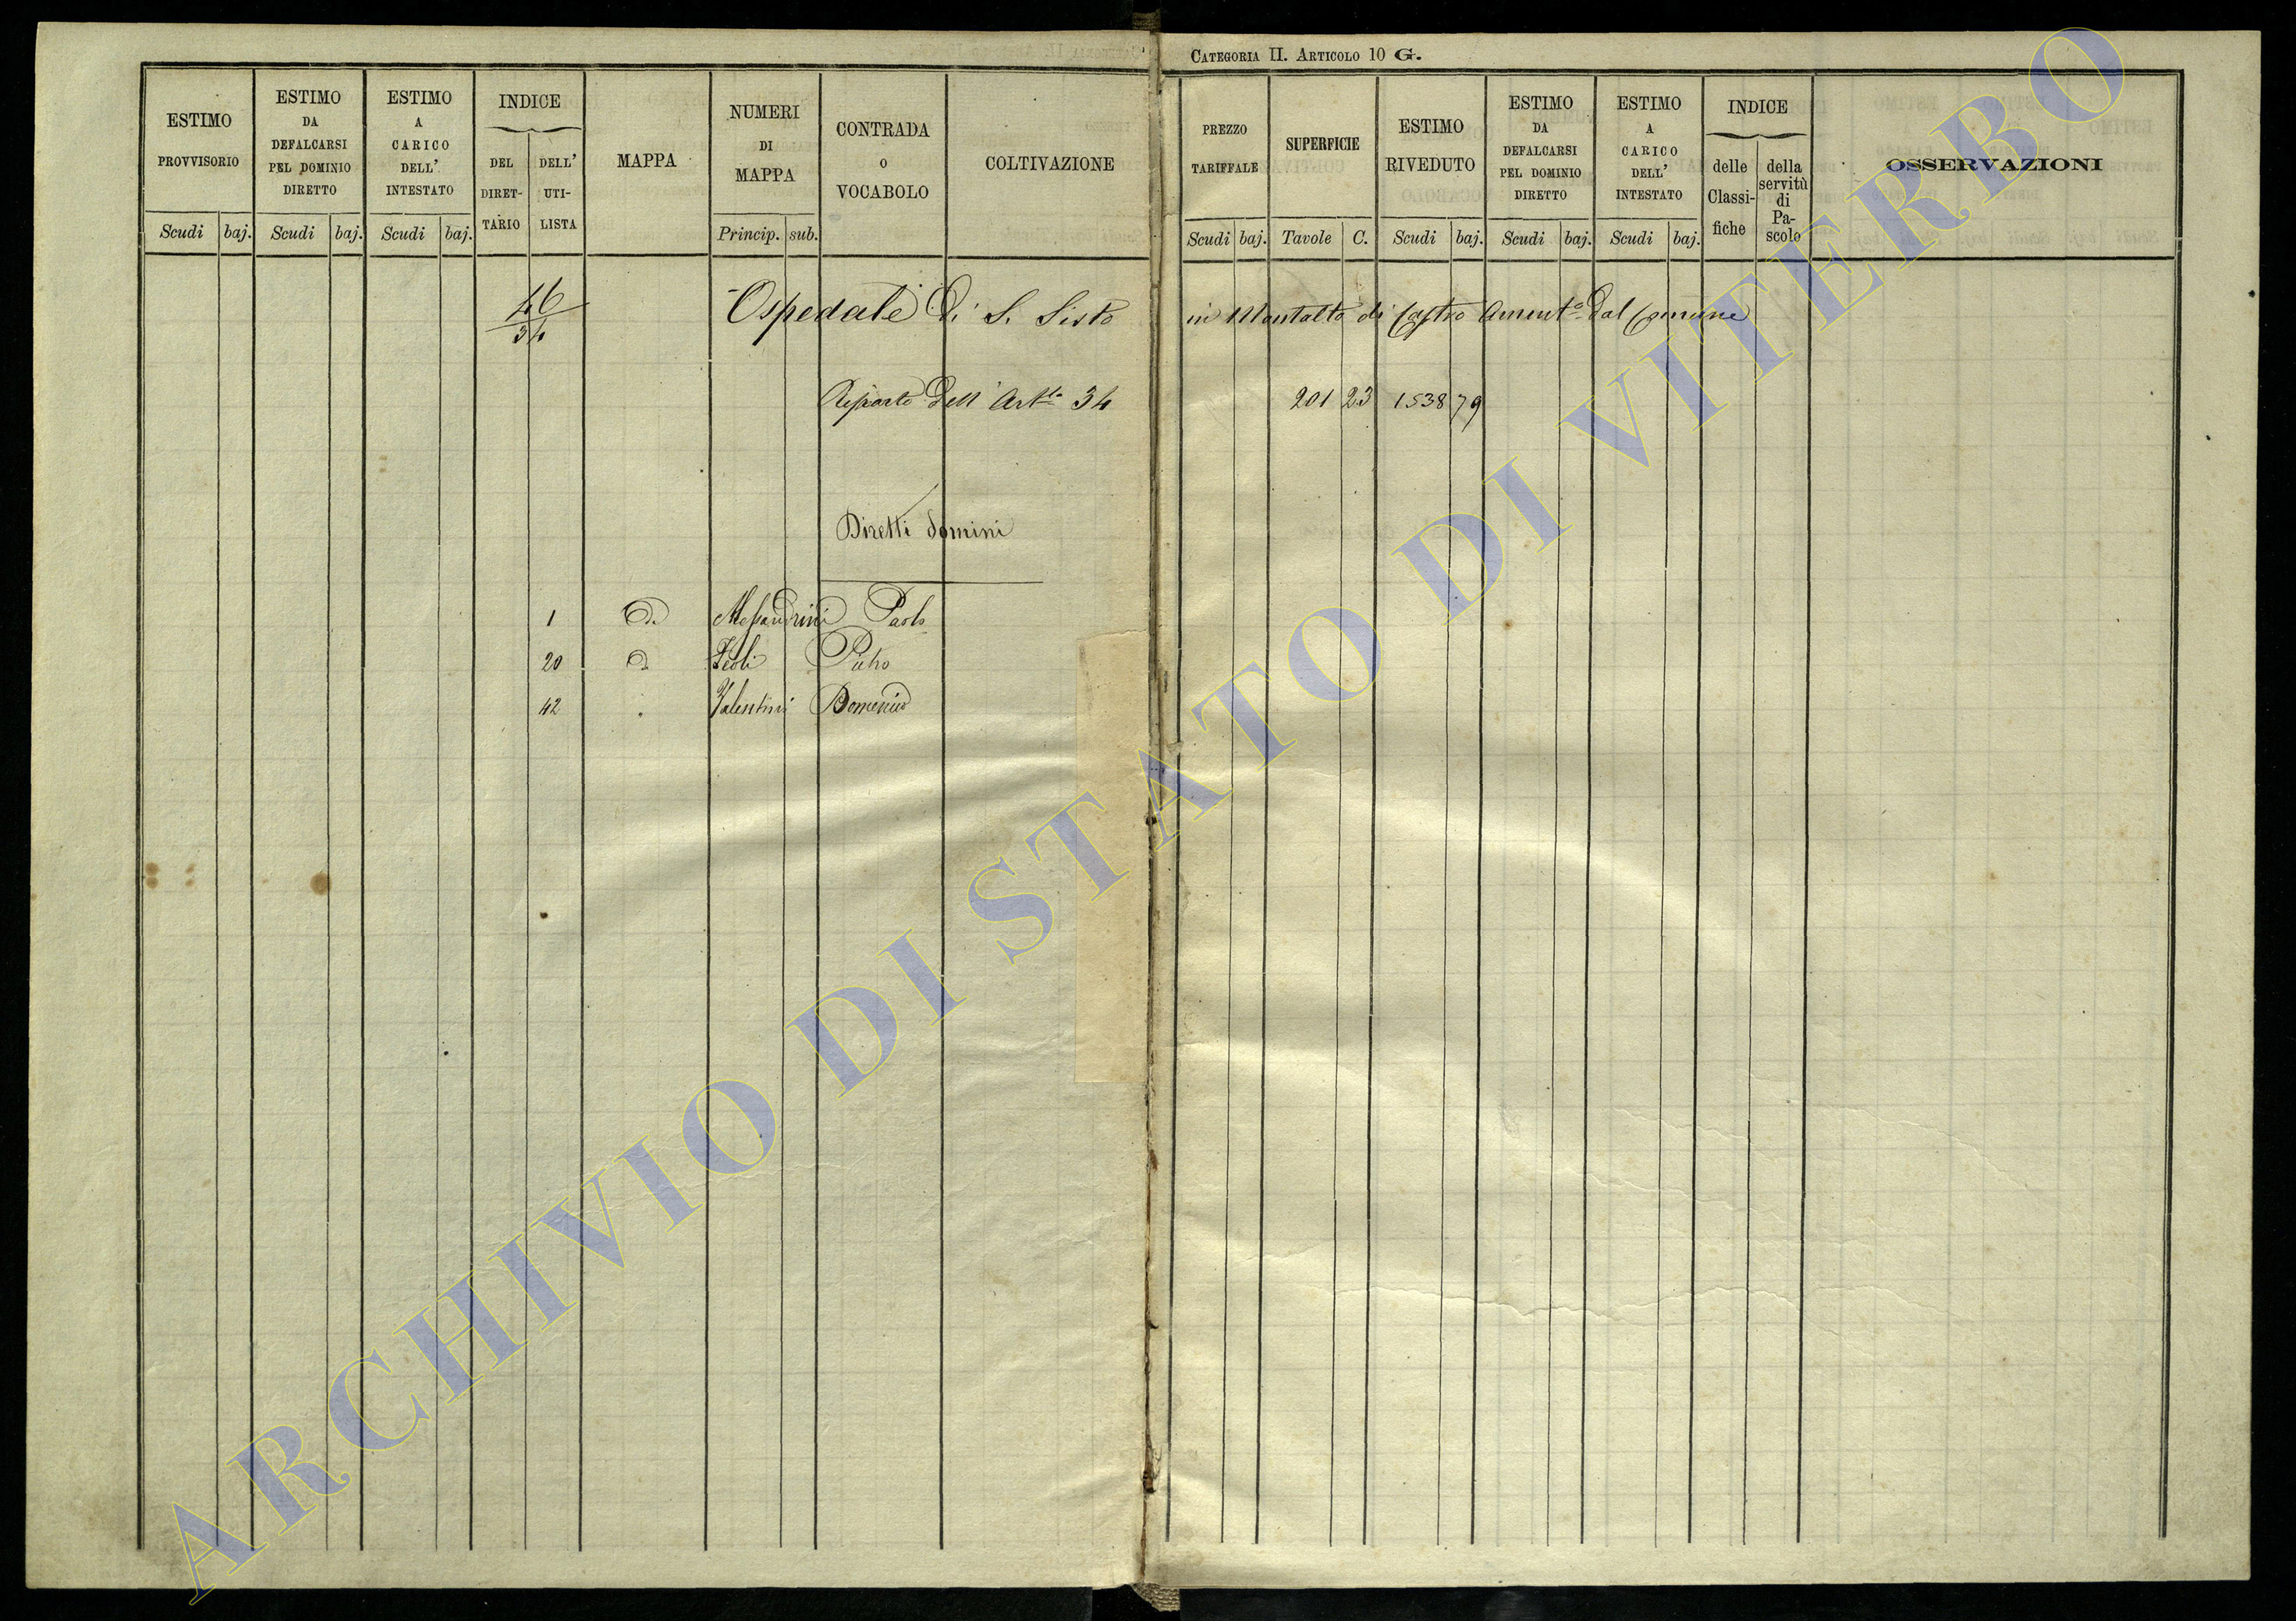 CATEGORIA II. ARTICOLO 10 G.
ESTIMO PROVVISORIO
ESTIMO DA DEFALCARSI PEL DOMINIO DIRETTO
ESTIMO A CARICO DELL' INTESTATO
INDICE
DEL DIRET-TARIO
DELL' UTI-LISTA
MAPPA
NUMERI DI MAPPA
CONTRADA O VOCABOLO
COLTIVAZIONE
PREZZO TARIFFALE
SUPERFICIE
ESTIMO RIVEDUTO
ESTIMO DA DEFALCARSI PEL DOMINIO DIRETTO
ESTIMO A CARICO DELL' INTESTATO
INDICE
delle Classi-fiche
della servitù di Pa-scolo
OSSERVAZIONI
Scudi baj. Scudi baj. Scudi baj. Princip. sub. Scudi baj. Tavole C. Scudi baj. Scudi baj. Scudi baj.
46 Ospedale di S. Sisto in Montalto di Castro Ament.o dal Comune
34
Riporto dell' Art.lo 34 201 23 1538 79
Diretti domini
1 Alessandrini Paolo
20 Zeoli Pietro
42 Valentini Domenico
ARCHIVIO DI STATO DI VITERBO